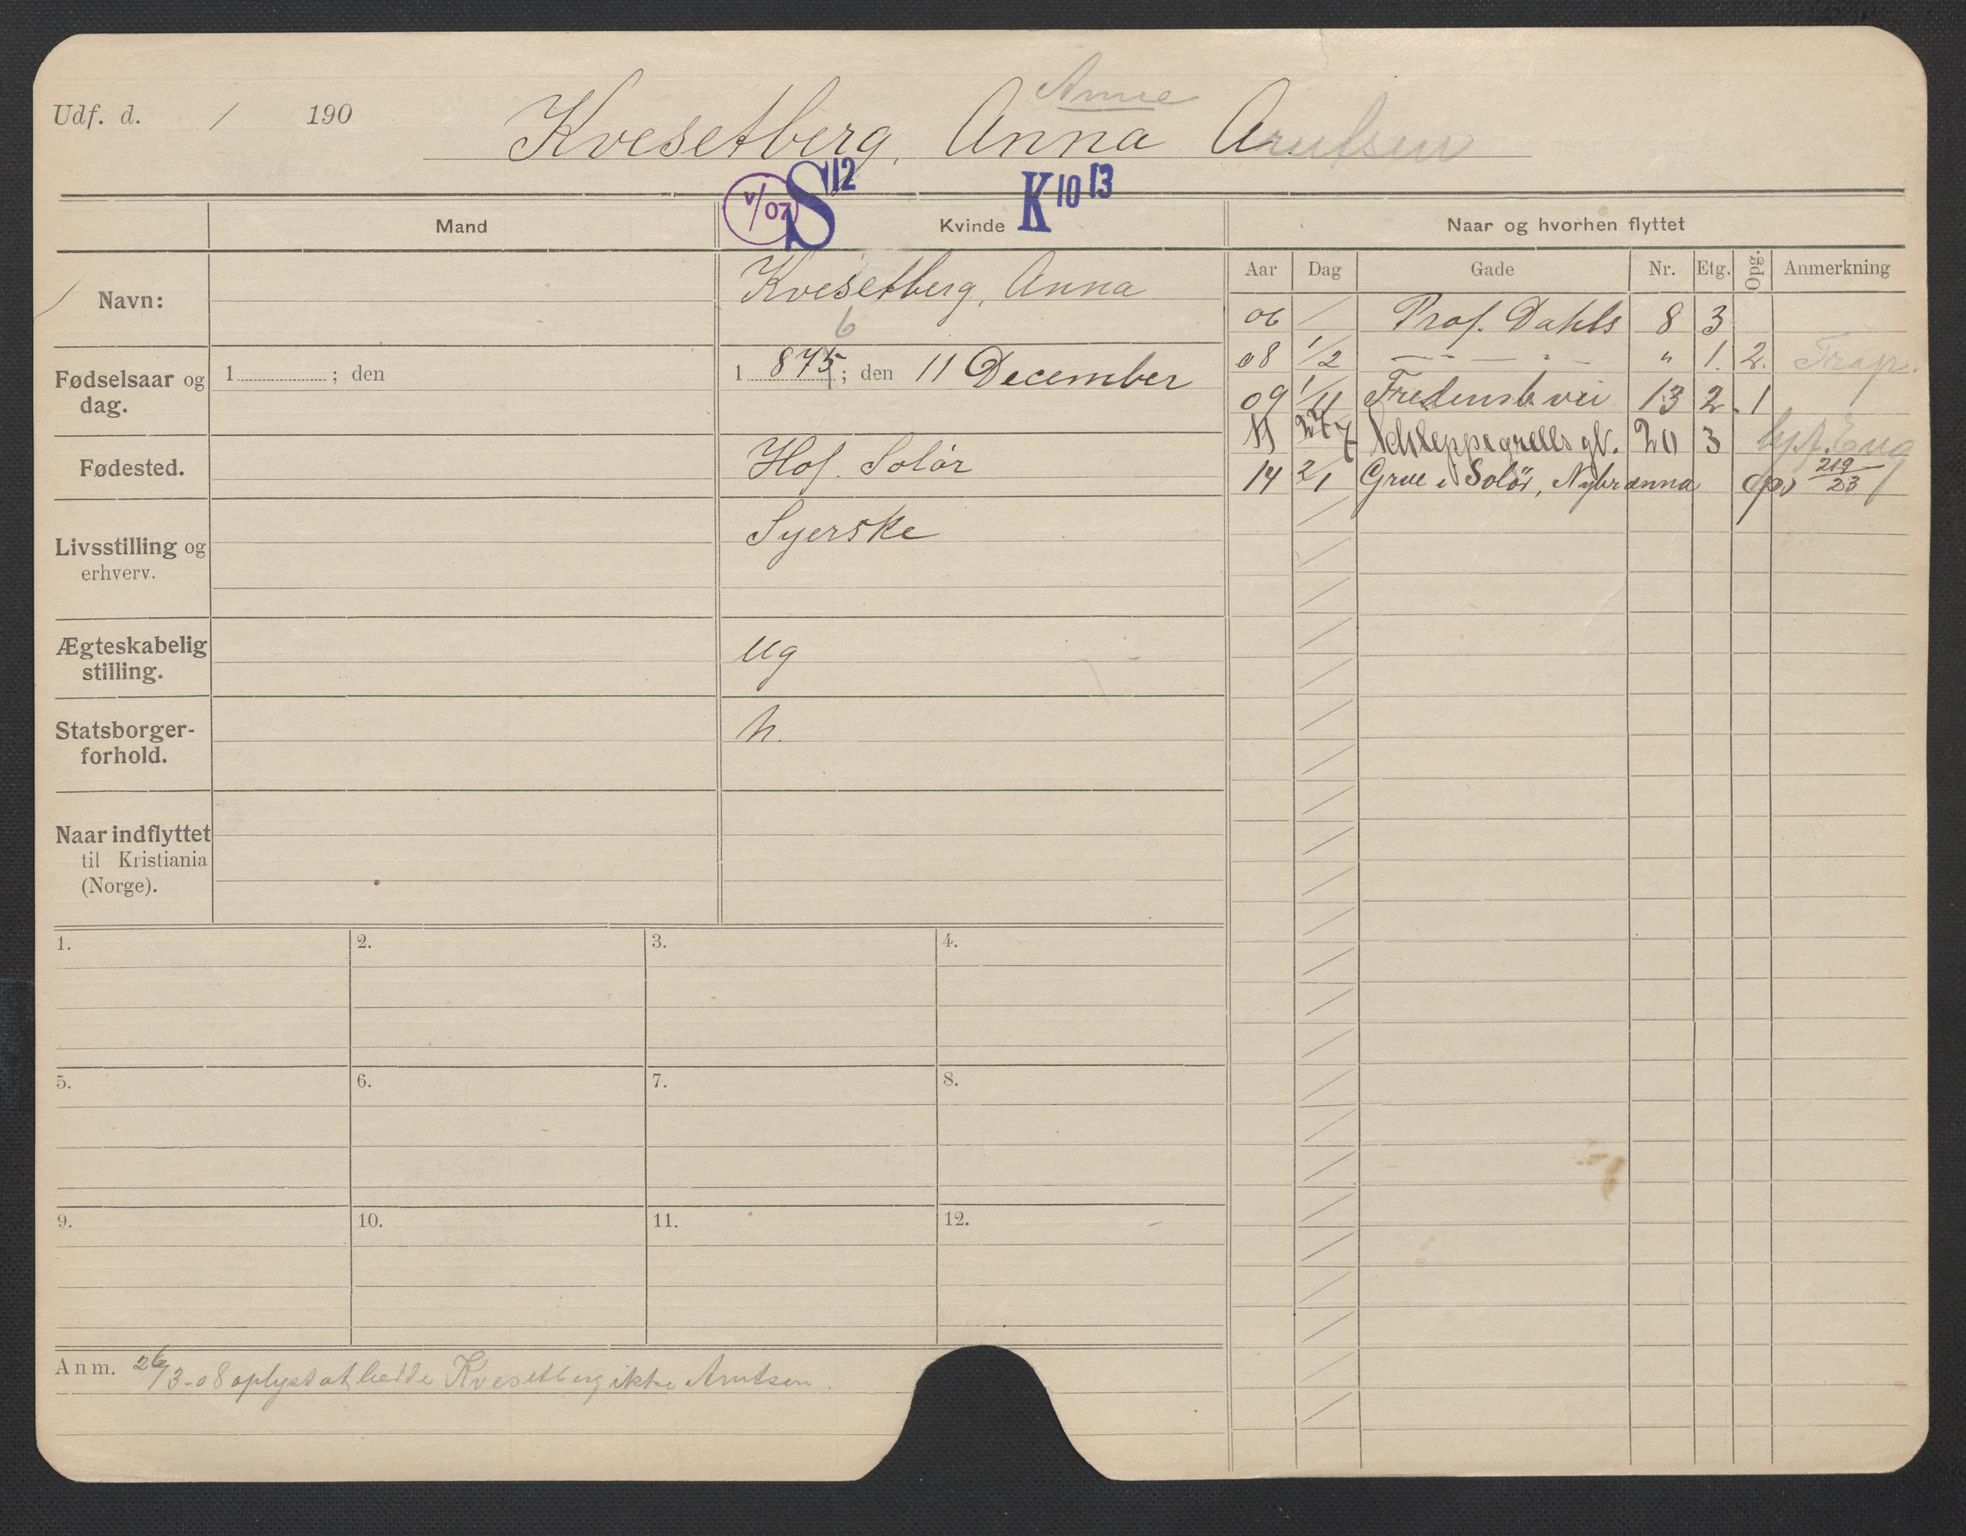 Udf. d. / 190
Anne
Kvesetberg, Anna Arntsen
V/07 S 12 K 10 13
Mand Kvinde Naar og hvorhen flyttet
Aar Dag Gade Nr. Etg. Opg. Anmerkning
Navn: Kvesetberg, Anna
6
Fødselsaar og dag. 1 ; den 1 875 ; den 11 December
Fødested. Hof. Solör
Livsstilling og erhverv. Syerske
Ægteskabelig stilling. Ug
Statsborgerforhold. N.
Naar indflyttet til Kristiania (Norge).
06 / Prof. Dahls 8 3
08 1/2 — " — " — " 1. 2. Trap.
09 1/11 Fredensb vei 13 2. 1
11 27/7 Schleppegrells gt. 20 3
14 2/1 Grue i Solör, Nybrænna opv 219/23
1. 2. 3. 4.
5. 6. 7. 8.
9. 10. 11. 12.
Anm. 26/3-08 oplyst at hedde Kvesetberg ikke Arntsen.